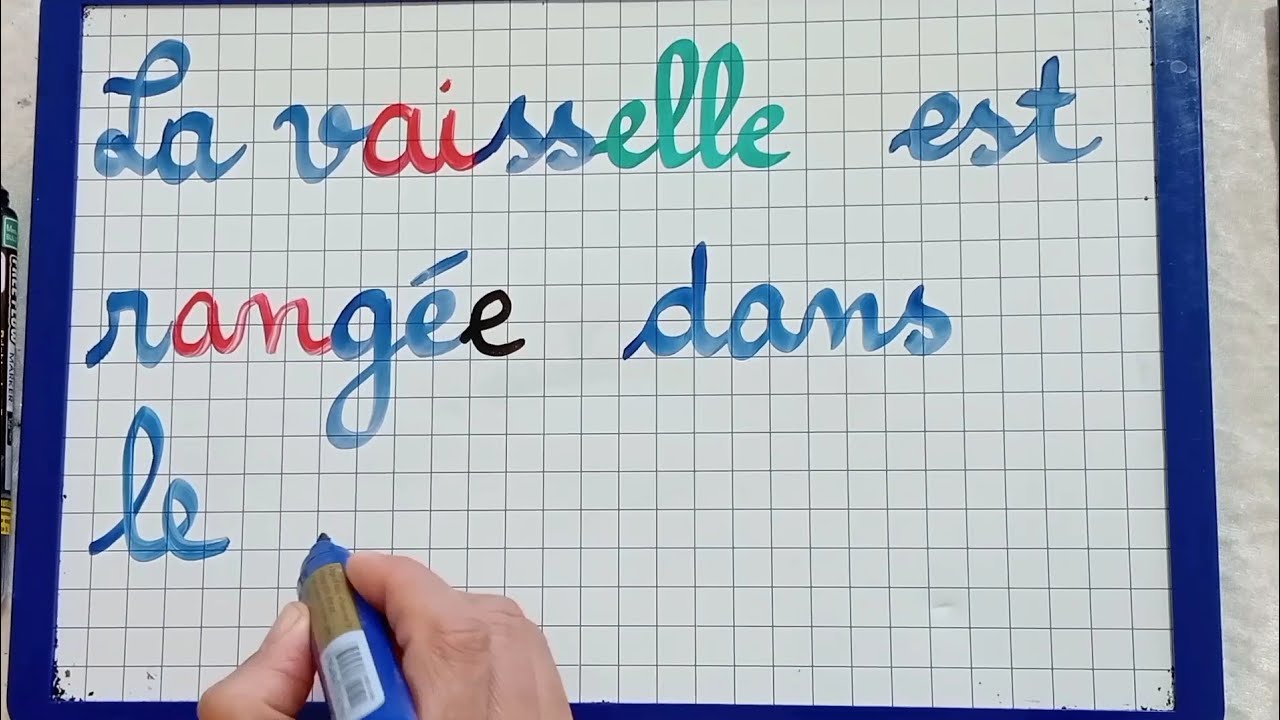 La vaisselle est
rangée dans
le